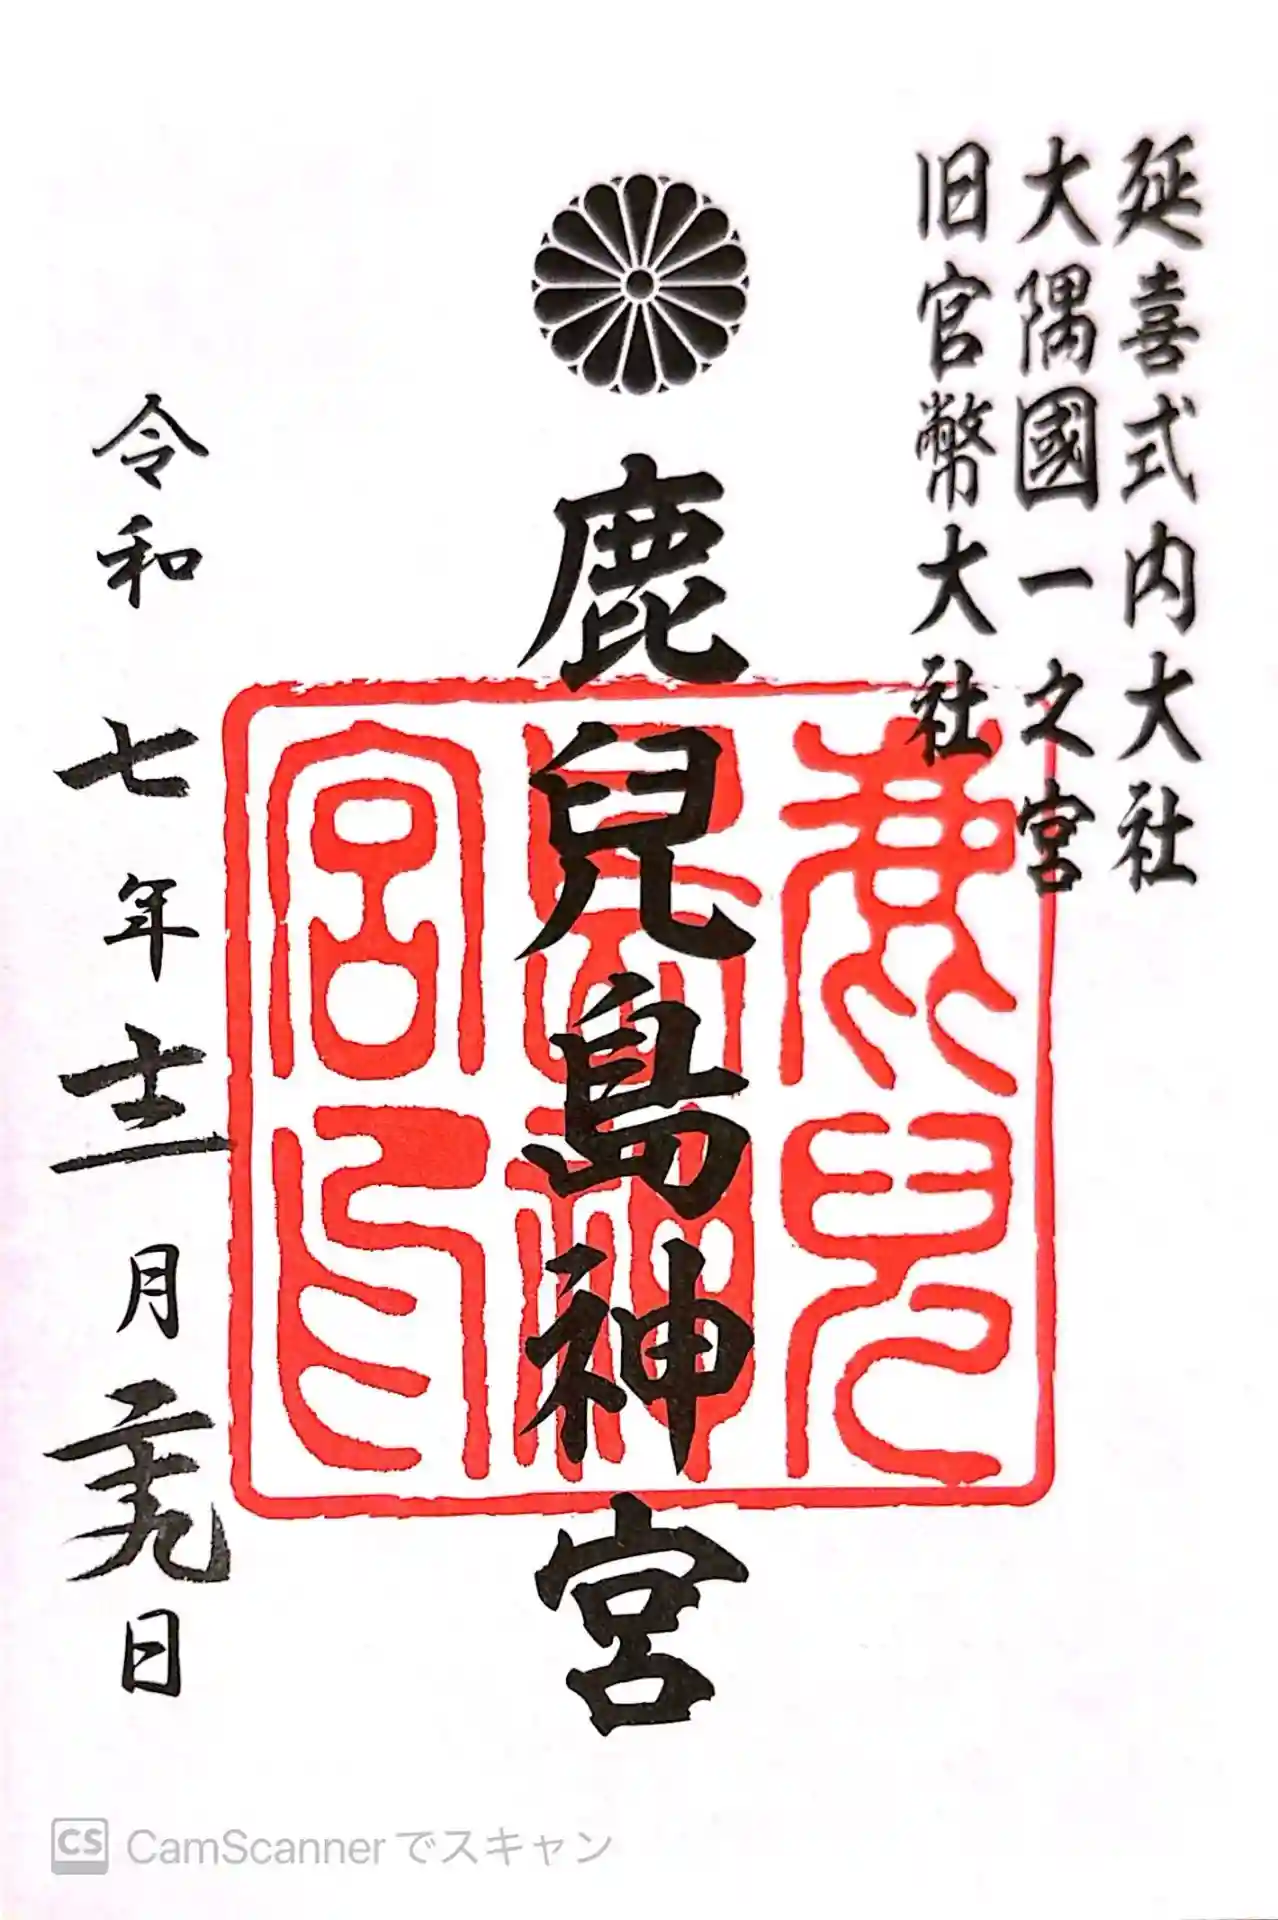 延喜式内大社
大隅國一之宮
旧官幣大社
鹿兒島神宮
鹿兒
島神
宮印
令和七年十二月二十九日
CS CamScannerでスキャン